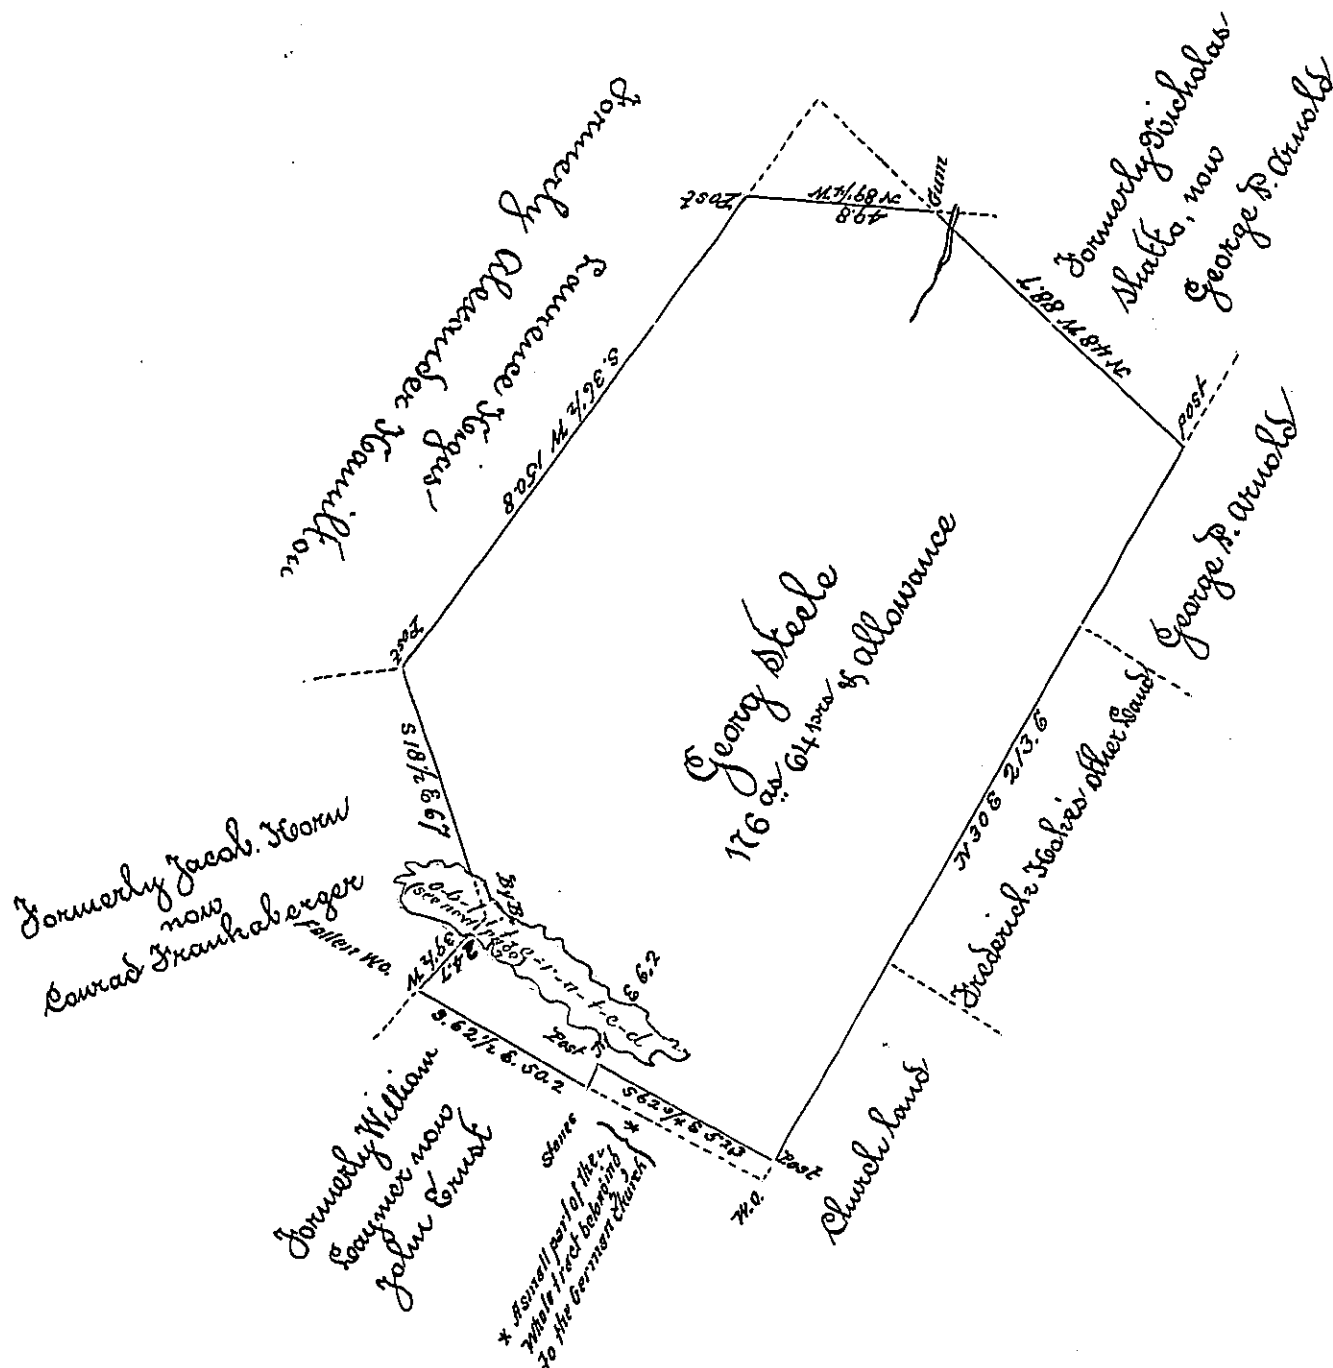 Formerly Alexander Hamilton
Lawrence Kigas-
Formerly Nicholas
Shatto, now
George P. Arnold
Post
N 89 1/4 W
49.8
Gum
N 48 W 88.7
post
S. 36 1/2 W 150.8
Post
S 18 1/2 E 67
George P. Arnold
Georg Steele
176 as 64 prs & allowance
N 30 E 213.6
Frederick Hake's other Land
Formerly Jacob. Horn
now
Conrad Frankaberger
fallen W.O.
39 1/2 W
24.7
S. 62 1/2 E. 50.2
Post
E 6.2
S 62 3/4 E 52.3
*
Post
W.O.
Stones
Church land
Formerly William
Laymer now
John Ernst
* A small part of the
Whole tract belonging
to the German Church